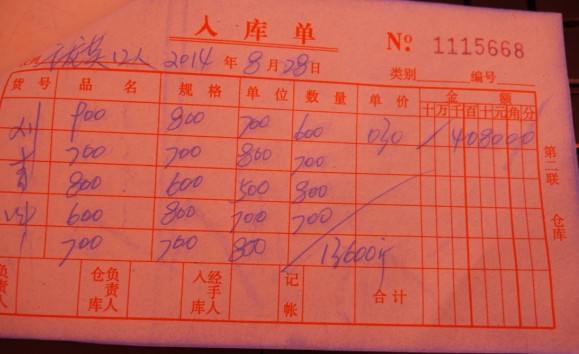 入库单
№ 1115668
12人 2014年8月28日 类别 编号
货号 品名 规格 单位 数量 单价 金额
十万千百十元角分
900 800 700 600 030 408000
700 700 800 700
800 600 500 800
600 800 700 700
700 700 800 13600斤
第二联 仓库
负责人 仓库负责人 入库经手人 记帐 合计